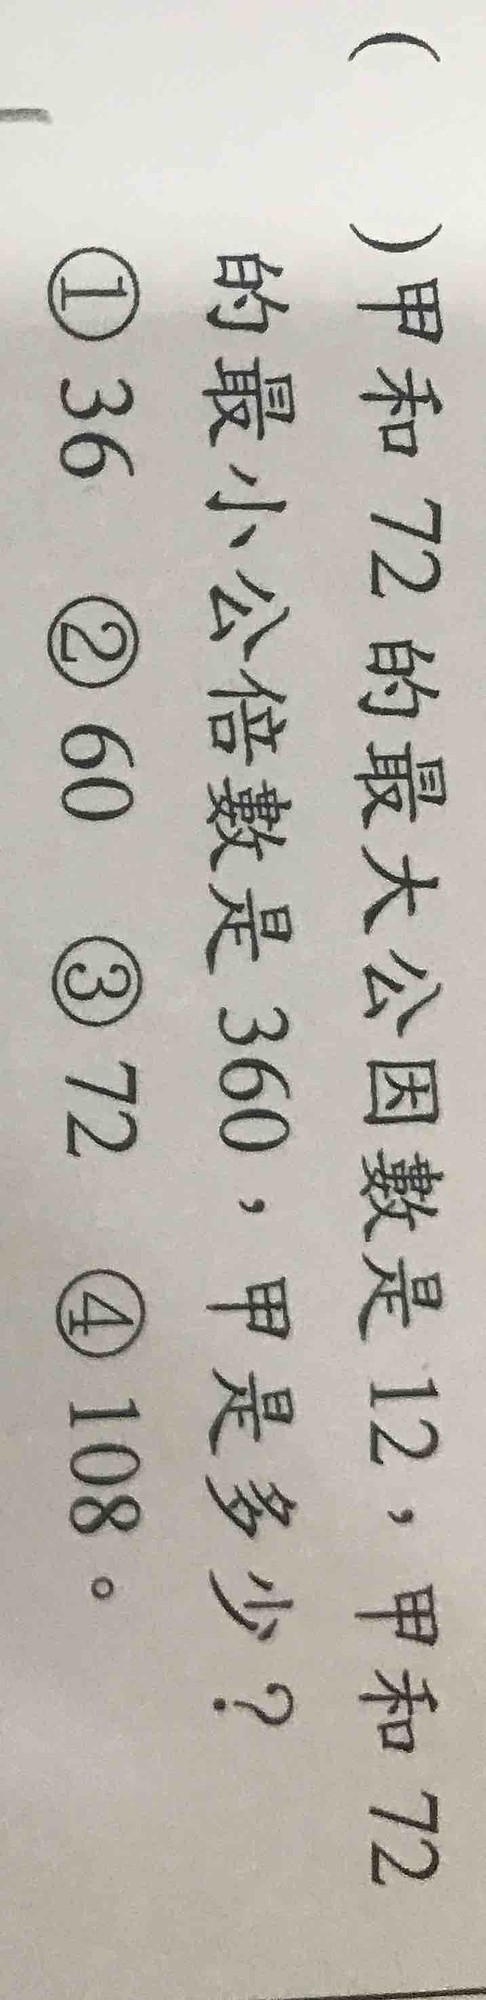 (　　)甲和 72 的最大公因數是 12，甲和 72
的最小公倍數是 360，甲是多少？
①36　②60　③72　④108。